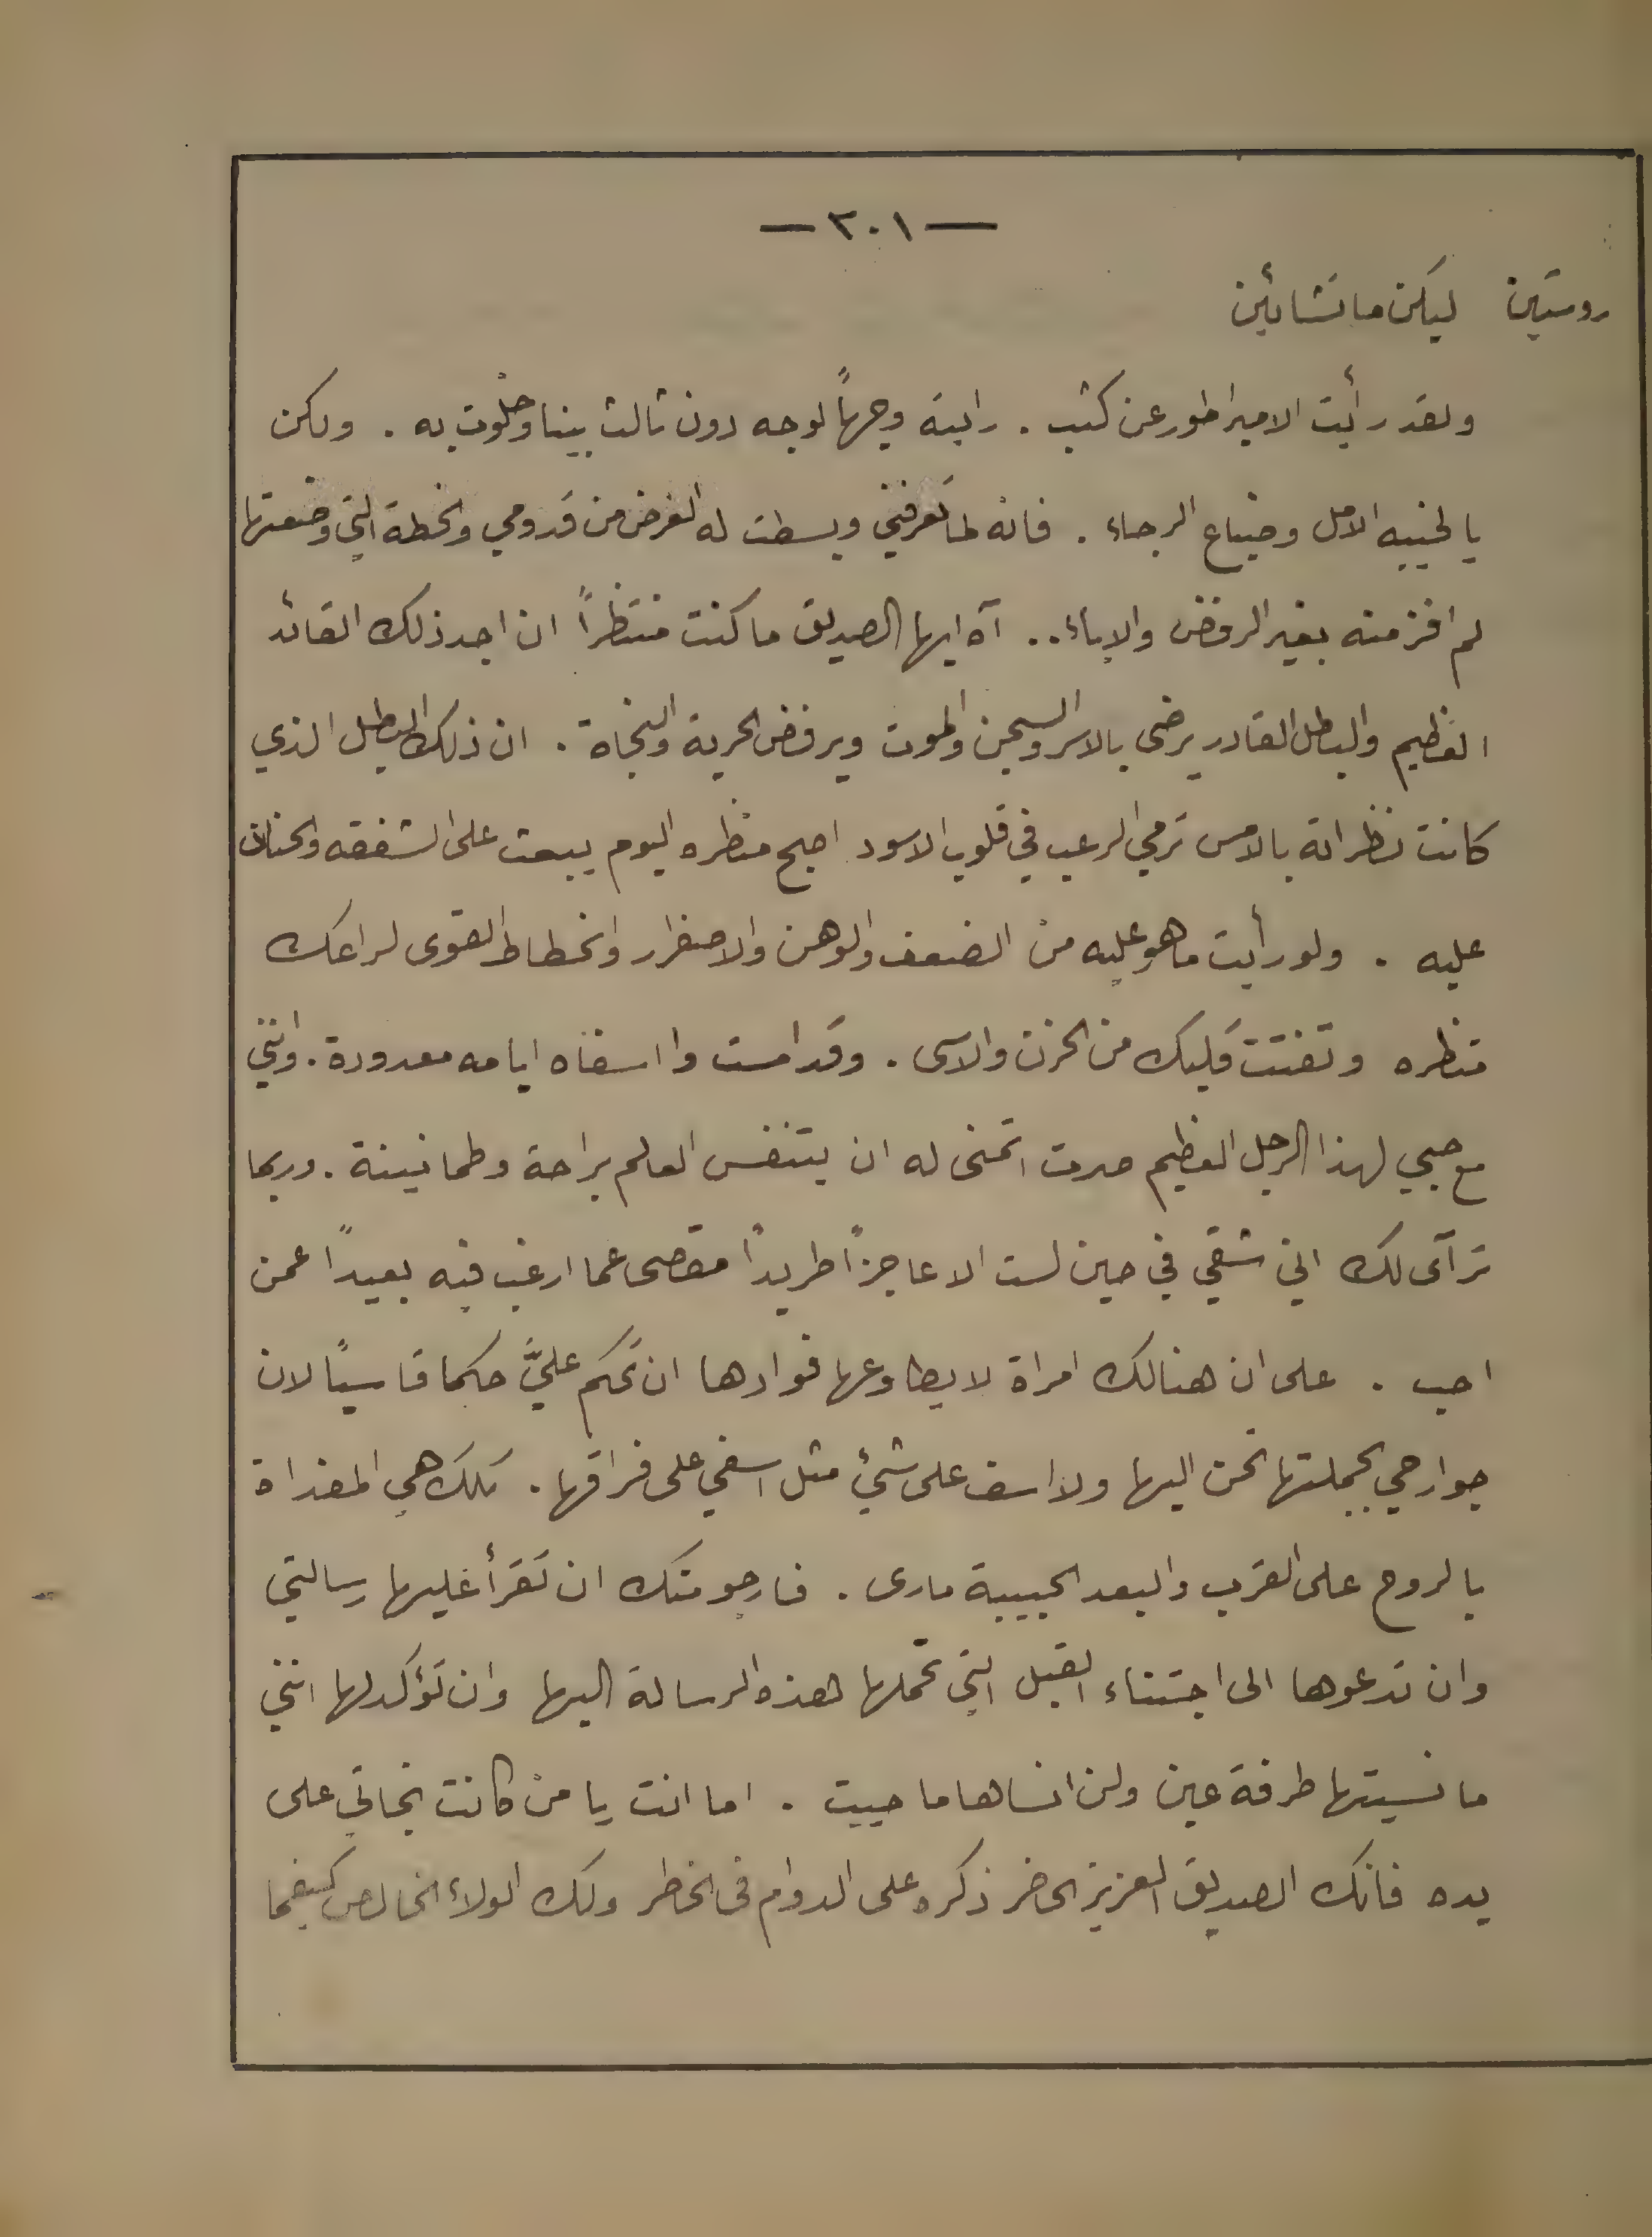 — ٣٠١ —
روستين ليكن ما تشائين
ولقد رأيت الامبراطور عن كثب . رايته وجهاً لوجه دون ثالث بيننا وخلوت به . ولكن
يا لخيبه الامل وضياع الرجاء . فانه لما تعرفني وبسطت له الغرض من قدومي والخطة التي وضعتها
لم افز منه بغير الرفض والاباء .. آه ايها الصديق ما كنت منتظراً ان اجد ذلك القائد
العظيم والبطل القادر يرضى بالاسر والسجن والموت ويرفض الحرية والنجاة . ان ذلك البطل الذي
كانت نظراته بالامس ترمي الرعب في قلوب الاسود اصبح منظره اليوم يبعث على الشفقه والحنان
عليه . ولو رأيت ما هو عليه من الضعف والوهن والاصفرار وانحطاط القوى لراعك
منظره وتفتت قلبك من الحزن والاسى . وقد امست وا اسفاه ايامه معدودة . وانني
مع حبي لهذا الرجل العظيم صرت اتمنى له ان يتنفس العالم براحة وطمانينة . وربما
ترآى لك اني شقي في حين لست الا عاجزاً طريداً مقصى عما ارغب فيه بعيداً عمن
احب . على ان هنالك امراة لا يطاوعها فوادها ان تحكم عليَّ حكما قاسياً لان
جوارحي بجملتها تحن اليها ولا اسف على شيئ مثل اسفي على فراقها . تلك هي المفداة
بالروح على القرب والبعد الحبيبة مارى . فارجو منك ان تقرأ عليها رسالتي
وان تدعوها الى اجتناء القبل التي تحملها هذه الرسالة اليها وان تؤكد لها انني
ما نسيتها طرفة عين ولن انساها ما حييت . اما انت يا من كانت نجاتي على
يده فانك الصديق العزيز الحاضر ذكره على الدوام في الخاطر ولك الولاء الخالص كيفما